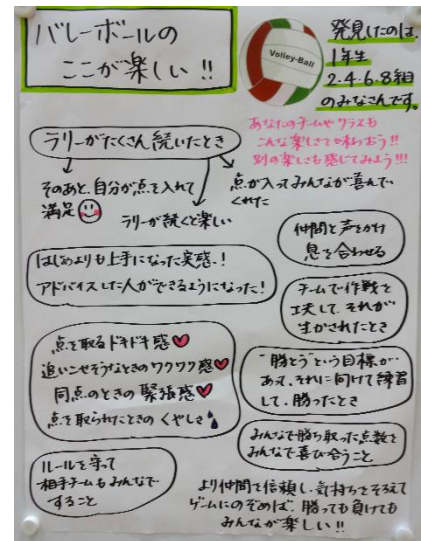 バレーボールの
ここが楽しい!!
Volley-Ball
発見したのは、
1年生
2.4.6.8組
のみなさんです。
あなたのチームやクラスも
こんな楽しさを味わおう!!
別の楽しさも感じてみよう!!!
ラリーがたくさん続いたとき
そのあと、自分が点を入れて
満足
ラリーが続くと楽しい
点が入ってみんなが喜んで
くれた
仲間と声をかけ
息を合わせる
はじめよりも上手になった実感!
アドバイスした人ができるようになった!
チームで作戦を
工夫して、それが
生かされたとき
点を取るドキドキ感
追いこせそうなときのワクワク感
同点のときの緊張感
点を取られたときのくやしさ
"勝とう"という目標が
あって、それに向けて練習
して、勝ったとき
みんなで勝ち取った点数を
みんなで喜び合うこと
ルールを守って
相手チームもみんなで
すること
より仲間を信頼し、気持ちをそろえて
ゲームにのぞめば、勝っても負けても
みんなが楽しい!!